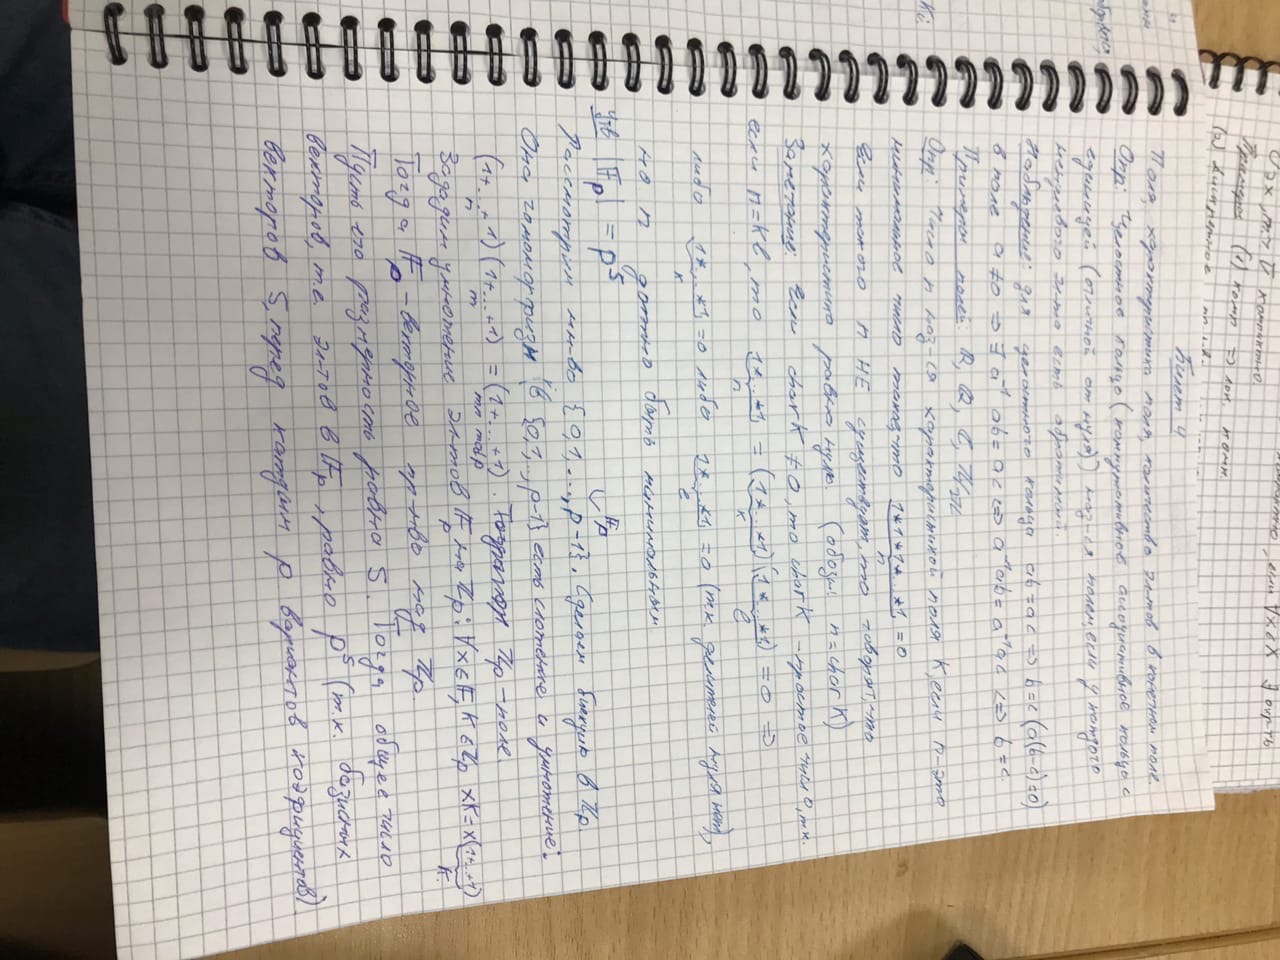 ∪∋x, т.ч. Ū компактно.
если ∀x∈X ∃ окр-ть
Примеры (1) комп ⇒ лок. комп.
(2) Дискретное
Билет 4
Поля, характеристика поля, количество эл-тов в конечном поле.
Опр: Целостное кольцо (коммутативное ассоциативное кольцо с
единицей (отличной от нуля)) наз-ся полем, если у каждого
ненулевого эл-та есть обратимый.
Наблюдение: для целостного кольца ab=ac ⇒ b=c (a(b-c)=0)
в поле a≠0 ⇒ ∃ a⁻¹ ab=ac ⇔ a⁻¹ab=a⁻¹ac ⇔ b=c.
Примеры полей: ℝ, ℚ, ℂ, ℤ/2ℤ
Опр: Число n наз-ся характеристикой поля K, если n-это
минимальное число такое, что 1*1*1*...*1 = 0
n
Если такого n НЕ существует, то говорят, что
характеристика равна нулю. (обозн. n=char K)
Замечание: Если char K ≠ 0, то char K - простое число, т.к.
если n=kl, то 1*...*1 = (1*...*1)(1*...*1) = 0 ⇒
n k l
либо 1*...*1 = 0 либо 1*...*1 = 0 (т.к. делителей нуля нет),
k l
но n должно быть минимальным.
Утв |𝔽p| = p^s
𝔽p
Рассмотрим мн-во {0,1,...,p-1}. Сделаем биекцию в ℤp.
Она гомоморфизм (в {0,1,..,p-1} есть сложение и умножение:
(1+...+1)(1+...+1) = (1+...+1). ℤp - поле.
n m mn mod p
Зададим умножение эл-тов 𝔽p на ℤp: ∀x∈𝔽, k∈ℤp xk=x(1+...+1)
k.
Тогда 𝔽p - векторное пр-нво над ℤp.
Пусть его размерность равна s. Тогда общее число
векторов, т.е. эл-тов в 𝔽p, равно p^s (т.к. базисных
векторов s, перед каждым p вариантов коэфициентов).